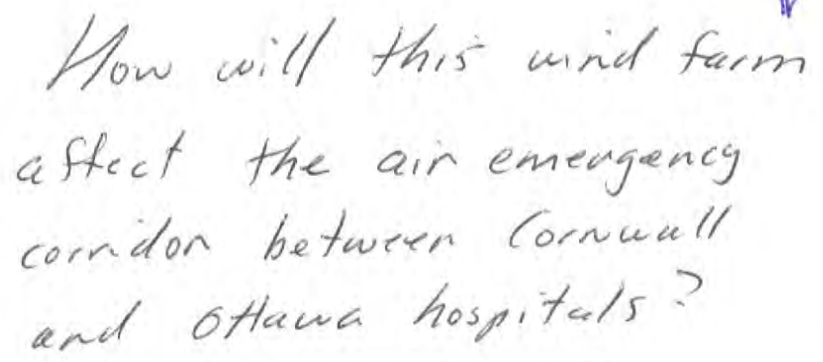 How will this wind farm
affect the air emergency
corridor between Cornwall
and Ottawa hospitals?